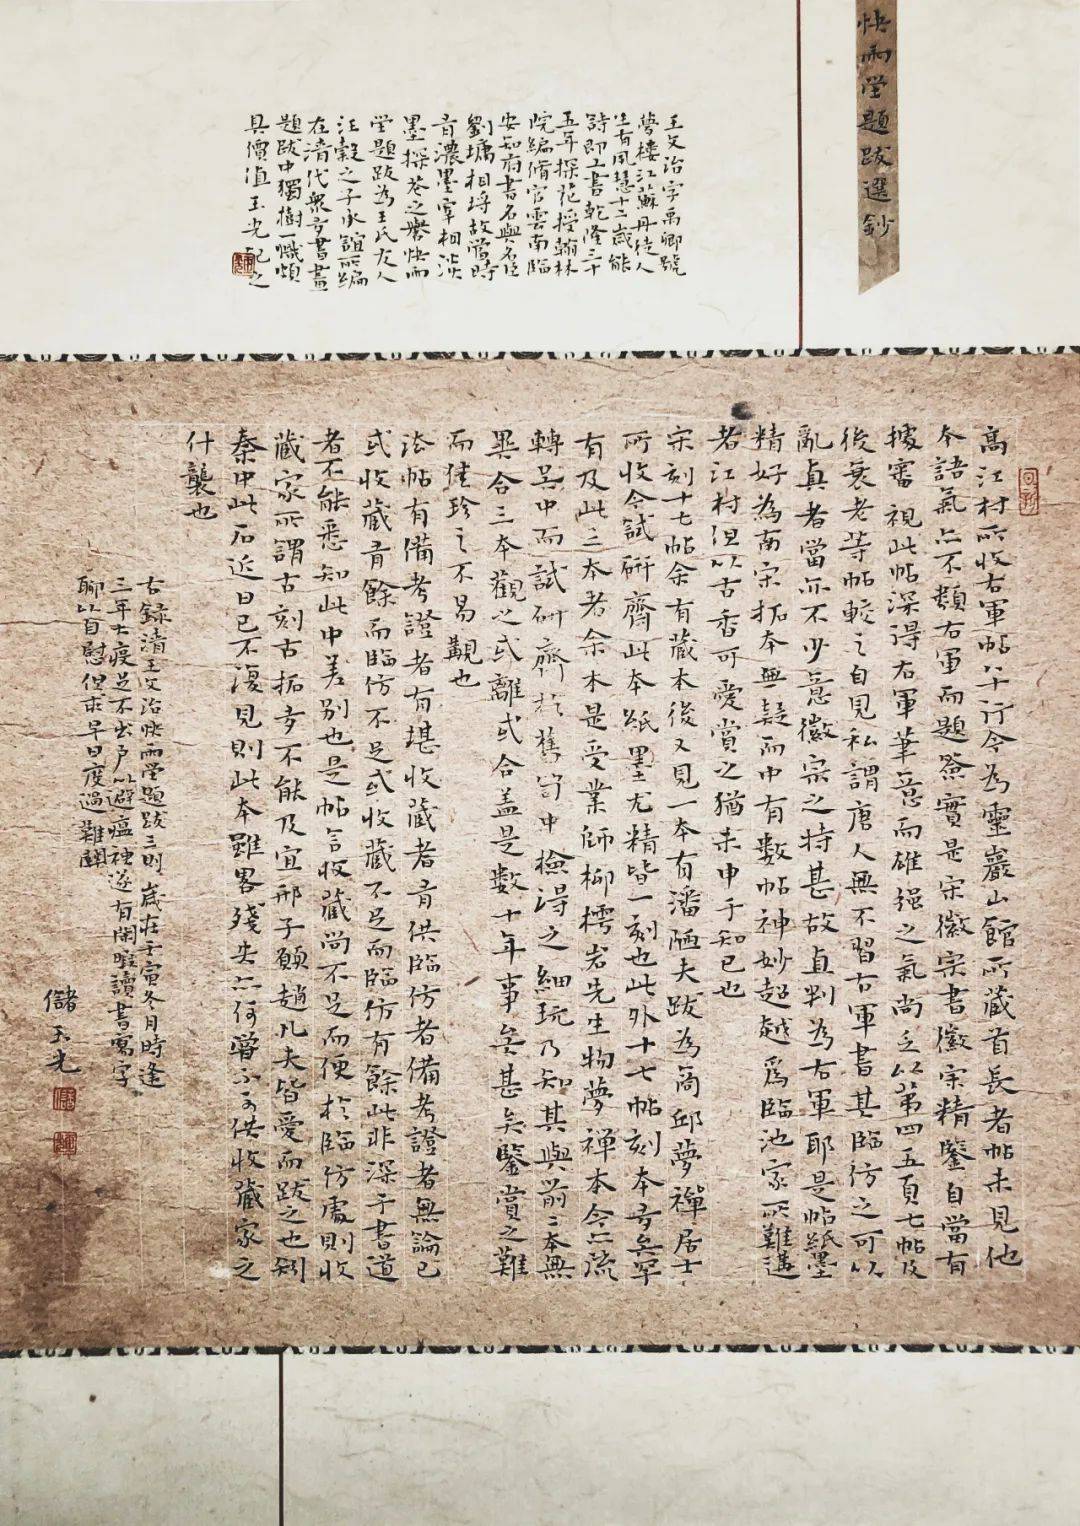 快雨堂題跋選鈔
王文治字禹卿號
夢樓江蘇丹徒人
生有夙慧十二歲能
詩即工書乾隆三十
五年探花授翰林
院編脩官雲南臨
安知府書名與名臣
劉墉相埒故當時
有濃墨宰相淡
墨探花之譽快雨
堂題跋為王氏友人
汪縠之子承誼所編
在清代眾多書畫
題跋中獨樹一幟頗
具價值玉光記之
高江村所收右軍帖八十行今為靈巖山館所藏首長者帖未見他
本語氣亦不類右軍而題簽實是宋徽宗書徽宗精鑒自當有
據審視此帖深得右軍筆意而雄强之氣尚乏以第四五頁七帖及
後衰老等帖較之自見私謂唐人無不習右軍書其臨仿之可以
亂真者當亦不少意徽宗之時甚故直判為右軍耶是帖紙墨
精好為南宋拓本無疑而中有數帖神妙超越為臨池家所難遘
者江村但以古香可愛賞之猶未申于知己也
宋刻十七帖余有藏本後又見一本有潘陋夫跋為商邱夢禪居士
所收今試研齋此本紙墨尤精皆一刻也此外十七帖刻本多矣罕
有及此三本者余本是受業師柳樗岩先生物夢禪本今亦流
轉吳中而試研齋於舊笥中檢得之細玩乃知其與前二本無
異合三本觀之或離或合蓋是數十年事矣甚矣鑒賞之難
而佳珍之不易覯也
法帖有備考證者有堪收藏者有供臨仿者備考證者無論已
或收藏有餘而臨仿不足或收藏不足而臨仿有餘此非深于書道
者不能悉知此中差別也是帖言收藏尚不足而便於臨仿處則收
藏家所謂古刻古拓多不能及宜邢子愿趙凡夫皆愛而跋之也矧
秦中此石近日已不復見則此本雖畧殘失亦何曾不可供收藏家之
什襲也
右錄清王文治快雨堂題跋三則歲在壬寅冬月時逢
三年大疫足不出户以避瘟神遂有閑暇讀書寫字
聊以自慰但求早日度過難關
儲玉光